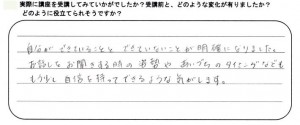 実際に講座を受講してみていかがでしたか？受講前と、どのような変化が有りましたか？
どのように役立てられそうですか？
自分ができていることとできていないことが明確になりました。
お話しをお聞きする時の姿勢やあいづちのタイミングなども
もう少し自信を持ってできるような気がします。